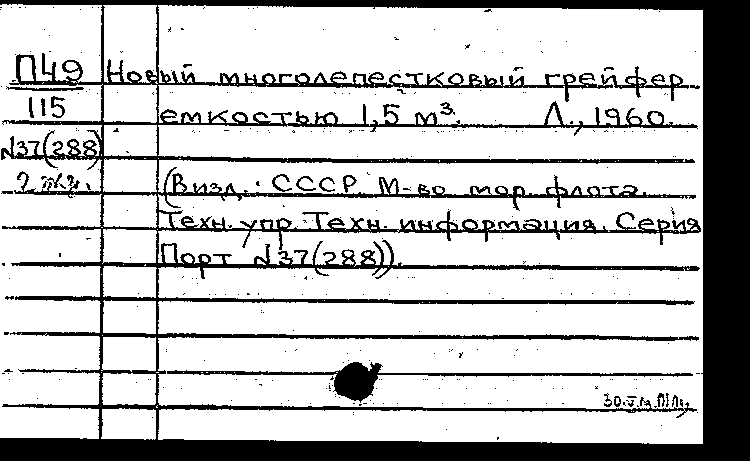 П49 Новый многолепестковый грейфер
115 емкостью 1,5 м³. Л., 1960.
N37(288)
(В изд.: СССР М-во мор. флота.
Техн. упр. Техн. информация. Серия
Порт N37(288)).